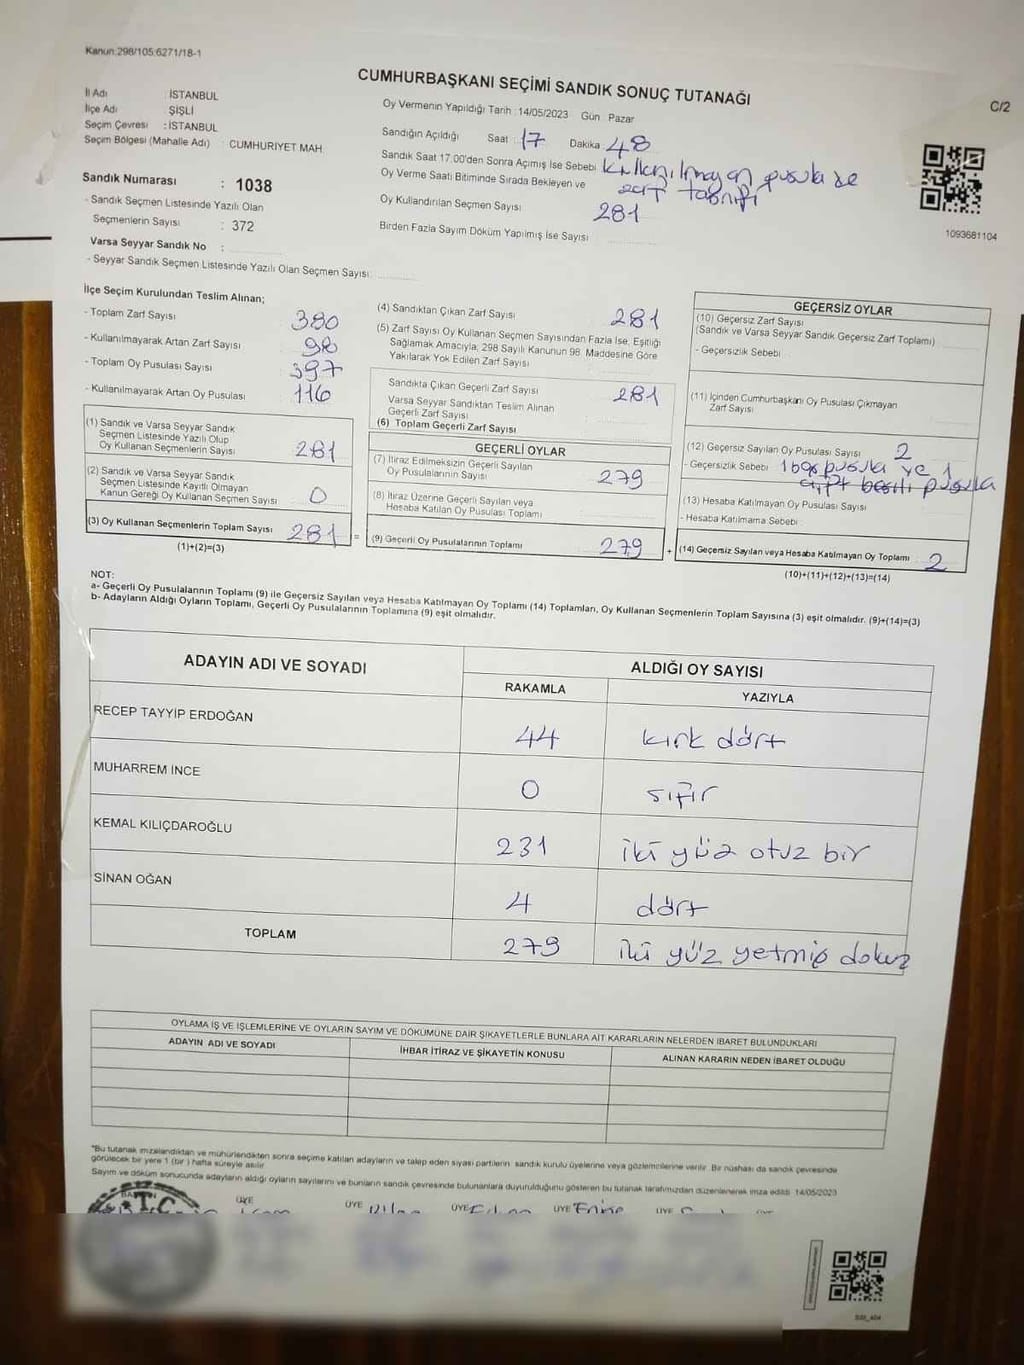 Kanun:298/105;6271/18-1
CUMHURBAŞKANI SEÇİMİ SANDIK SONUÇ TUTANAĞI
C/2
İl Adı : İSTANBUL
İlçe Adı : ŞİŞLİ
Seçim Çevresi : İSTANBUL
Seçim Bölgesi (Mahalle Adı) : CUMHURİYET MAH.
Sandık Numarası : 1038
- Sandık Seçmen Listesinde Yazılı Olan
Seçmenlerin Sayısı : 372
Varsa Seyyar Sandık No :
- Seyyar Sandık Seçmen Listesinde Yazılı Olan Seçmen Sayısı:
Oy Vermenin Yapıldığı Tarih : 14/05/2023 Gün : Pazar
Sandığın Açıldığı Saat : 17 Dakika : 48
Sandık Saat 17.00'den Sonra Açılmış İse Sebebi Kullanılmayan pusula ve
zarf tasnifi
Oy Verme Saati Bitiminde Sırada Bekleyen ve
Oy Kullandırılan Seçmen Sayısı 281
Birden Fazla Sayım Döküm Yapılmış İse Sayısı :
1093681104
İlçe Seçim Kurulundan Teslim Alınan;
- Toplam Zarf Sayısı 380
- Kullanılmayarak Artan Zarf Sayısı 98
- Toplam Oy Pusulası Sayısı 397
- Kullanılmayarak Artan Oy Pusulası 116
(1) Sandık ve Varsa Seyyar Sandık
Seçmen Listesinde Yazılı Olup
Oy Kullanan Seçmenlerin Sayısı 281
(2) Sandık ve Varsa Seyyar Sandık
Seçmen Listesinde Kayıtlı Olmayan
Kanun Gereği Oy Kullanan Seçmen Sayısı 0
(3) Oy Kullanan Seçmenlerin Toplam Sayısı 281 =
(1)+(2)=(3)
(4) Sandıktan Çıkan Zarf Sayısı 281
(5) Zarf Sayısı Oy Kullanan Seçmen Sayısından Fazla İse, Eşitliği
Sağlamak Amacıyla, 298 Sayılı Kanunun 98. Maddesine Göre
Yakılarak Yok Edilen Zarf Sayısı
Sandıkta Çıkan Geçerli Zarf Sayısı 281
Varsa Seyyar Sandıktan Teslim Alınan
Geçerli Zarf Sayısı
(6) Toplam Geçerli Zarf Sayısı
GEÇERLİ OYLAR
(7) İtiraz Edilmeksizin Geçerli Sayılan
Oy Pusulalarının Sayısı 279
(8) İtiraz Üzerine Geçerli Sayılan veya
Hesaba Katılan Oy Pusulası Toplamı
(9) Geçerli Oy Pusulalarının Toplamı 279 +
GEÇERSİZ OYLAR
(10) Geçersiz Zarf Sayısı
(Sandık ve Varsa Seyyar Sandık Geçersiz Zarf Toplamı)
- Geçersizlik Sebebi
(11) İçinden Cumhurbaşkanı Oy Pusulası Çıkmayan
Zarf Sayısı
(12) Geçersiz Sayılan Oy Pusulası Sayısı 2
- Geçersizlik Sebebi 1 boş pusula ve 1
çift basılı pusula
(13) Hesaba Katılmayan Oy Pusulası Sayısı
- Hesaba Katılmama Sebebi
(14) Geçersiz Sayılan veya Hesaba Katılmayan Oy Toplamı 2
(10)+(11)+(12)+(13)=(14)
NOT:
a- Geçerli Oy Pusulalarının Toplamı (9) ile Geçersiz Sayılan veya Hesaba Katılmayan Oy Toplamı (14) Toplamları, Oy Kullanan Seçmenlerin Toplam Sayısına (3) eşit olmalıdır. (9)+(14)=(3)
b- Adayların Aldığı Oyların Toplamı, Geçerli Oy Pusulalarının Toplamına (9) eşit olmalıdır.
ADAYIN ADI VE SOYADI ALDIĞI OY SAYISI
RAKAMLA YAZIYLA
RECEP TAYYİP ERDOĞAN 44 kırk dört
MUHARREM İNCE 0 sıfır
KEMAL KILIÇDAROĞLU 231 iki yüz otuz bir
SİNAN OĞAN 4 dört
TOPLAM 279 iki yüz yetmiş dokuz
OYLAMA İŞ VE İŞLEMLERİNE VE OYLARIN SAYIM VE DÖKÜMÜNE DAİR ŞİKAYETLERLE BUNLARA AİT KARARLARIN NELERDEN İBARET BULUNDUKLARI
ADAYIN ADI VE SOYADI İHBAR İTİRAZ VE ŞİKAYETİN KONUSU ALINAN KARARIN NEDEN İBARET OLDUĞU
"Bu tutanak imzalandıktan ve mühürlendikten sonra seçime katılan adayların ve talep eden siyasi partilerin sandık kurulu üyelerine veya gözlemcilerine verilir. Bir nüshası da sandık çevresinde
görülecek bir yere 1 (bir) hafta süreyle asılır.
Sayım ve döküm sonucunda adayların aldığı oyların sayılarını ve bunların sandık çevresinde bulunanlara duyurulduğunu gösteren bu tutanak tarafımızdan düzenlenerek imza edildi. 14/05/2023
T.C.
ÜYE ÜYE ÜYE ÜYE ÜYE